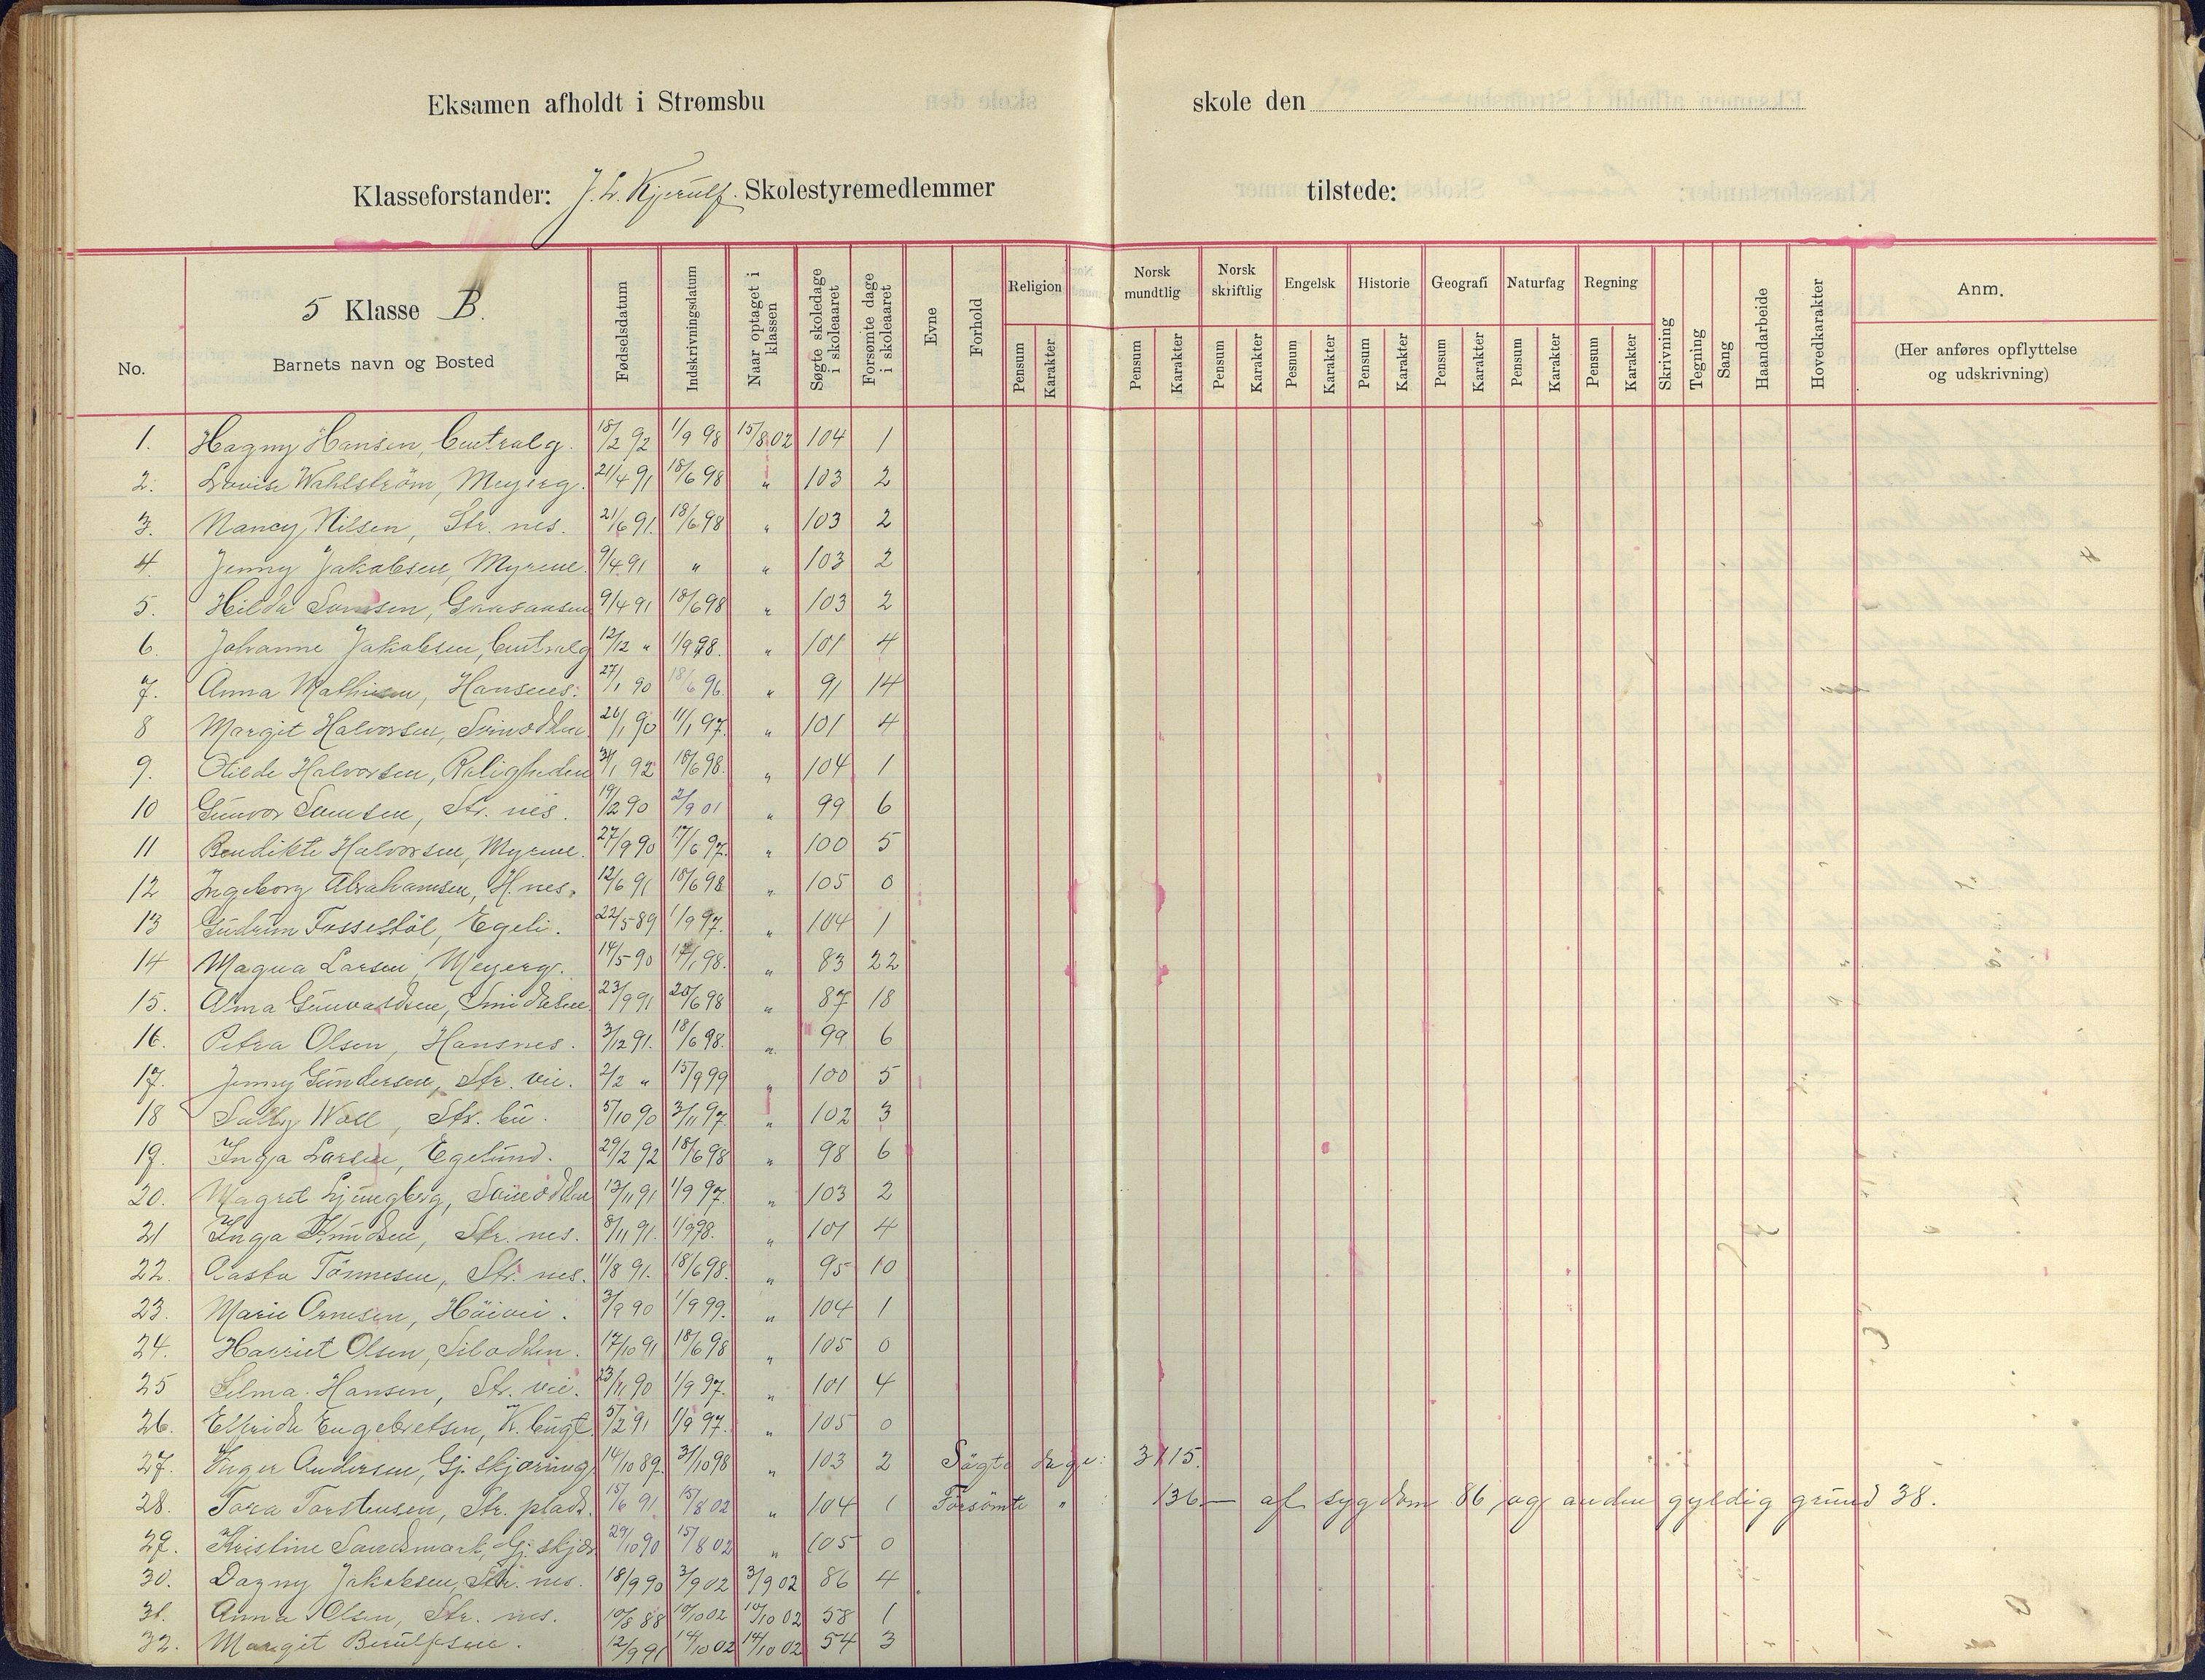 Eksamen afholdt i Strømsbu skole den
Klasseforstander: J. L. Kjerulf. Skolestyremedlemmer tilstede:
No. 5 Klasse B. Barnets navn og Bosted Fødselsdatum Indskrivningsdatum Naar optaget i klassen Søgte skoledage i skoleaaret Forsømte dage i skoleaaret Evne Forhold Religion Norsk mundtlig Norsk skriftlig Engelsk Historie Geografi Naturfag Regning Skrivning Tegning Sang Haandarbeide Hovedkarakter Anm.
(Her anføres opflyttelse og udskrivning)
Pensum Karakter Pensum Karakter Pensum Karakter Pesnum Karakter Pensum Karakter Pensum Karakter Pensum Karakter Pensum Karakter
1. Hagny Hansen, Centralg. 18/2 92 1/9 98 15/8 02 104 1
2. Lovise Wahlström, Meyerg. 21/4 91 18/6 98 " 103 2
3. Nancy Nilsen, Str. nes. 21/6 91. 18/6 98 " 103 2
4. Jenny Jakobsen, Myrene. 9/4 91 " " 103 2
5. Hilda 9/4 91 18/6 98 " 103 2
6. Johanne Jakobsen, Centralg 12/12 " 1/9 98. " 101 4
7. Anna Mathisen, Hansnes. 27/1 90 18/6 96. " 91 14
8 Margit Halvorsen, 26/1 90 11/1 97. " 101 4
9. Otilde Halvorsen, Roligheden 31/1 92 18/6 98. " 104 1
10 Gunvor Samsen, Str. nes. 19/2 90 2/9 01 " 99 6
11 Bendikte Halvorsen, Myrene. 27/9 90 17/6 97. " 100 5
12 Ingeborg Abrahamsen, H. nes. 12/6 91 18/6 98 " 105 0
13 Gudrun Fossestöl, Egeli. 22/5 89 1/9 97. " 104 1
14 Magna Larsen, Meyerg. 14/5 90 98. " 83 22
15. Alma Gunvaldsen, 23/9 91 20/6 98 " 87 18
16. Petra Olsen, Hansnes. 3/12 91. 18/6 98. " 99 6
17. Jenny Gundersen, Str. vei. 2/2 " 15/9 99 " 100 5
18 Sally Woll, Str. bu. 5/10 90 3/11 97. " 102 3
19. Inga Larsen, Egelund. 29/2 92 18/6 98 " 98 6
20. Magret Ljungberg, 13/11 91 1/9 97. " 103 2
21 Inga Knudsen, Str. nes. 8/11 91. 1/9 98. " 101 4
22. Aasta Tönnesen, Str. nes. 11/8 91. 18/6 98. " 95 10
23. Marie Ornesen, Höivei. 3/9 90 1/9 99. " 104 1
24. Harriet Olsen, Silodden. 17/10 91 18/6 98 " 105 0
25 Selma Hansen, Str. vei. 23/11 90 1/9 97. " 101 4
26. Elfrida Engebretsen, K. bugt. 5/2 91 1/9 97. " 105 0
27. Inger Andersen, Gj. skjæring. 14/10 89. 31/10 98 " 103 2 Sögte dage: 3115.
28. Tora Torstensen, Str. plads. 15/6 91 15/8 02 " 104 1 Forsömte " 136 — af sygdom 86, og anden gyldig grund 38.
29. Kristine Sandsmark, Gj. skjær. 29/10 90 15/8 02 " 105 0
30. Dagny Jakobsen, Str. nes. 18/9 90 3/9 02 3/9 02 86 4
31. Anna Olsen, Str. nes. 10/8 88 10/10 02 10/10 02 58 1
32. Margit Berulfsen. 12/9 91 14/10 02 14/10 02 54 3